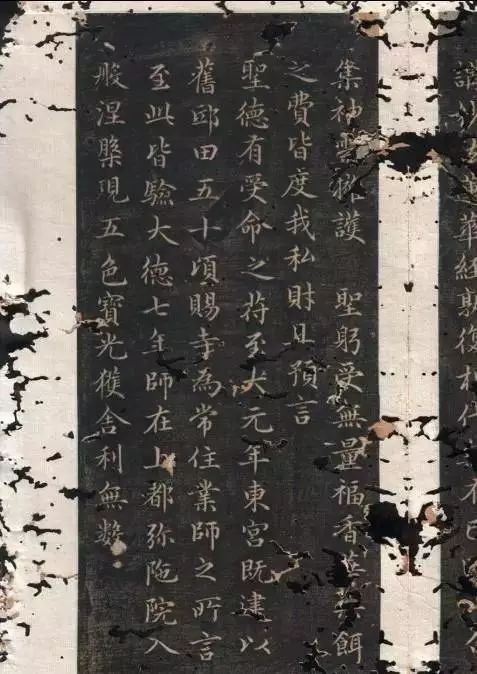 華經孰復相
集神雲擁護　聖躬受無量福香華鐙餌
之費皆度我私財且預言
聖德有受命之符至大元年東宮既建以
舊邸田五十頃賜寺為常住業師之所言
至此皆驗大德七年師在上都弥陁院入
般涅槃現五色寶光獲舍利無數